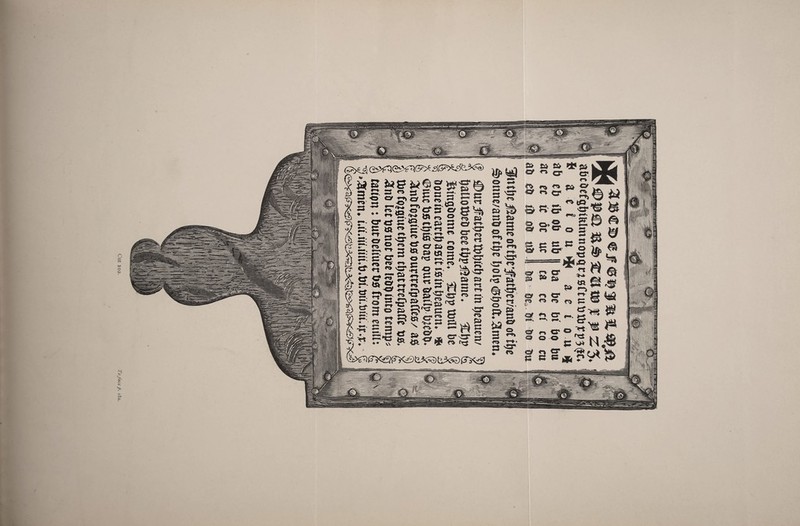 ✠ A B C D E F G H J I K L M N
O P Q R S T U W X Y Z Z.
abcdefghiklmnopqrꝛsſtuvwxyz &c.
✠ a e i o u ✠ a e i o u ✠
ab eb ib ob ub ba be bi bo bu
ac ec ic oc uc ca ce ci co cu
ad ed id od ud da de di do du
In the Name of the Father/and of the
Sonne/and of the holy Ghost. Amen.
Our Father which art in heauen/
hallowed bee thy Name. Thy
Kingdome come. Thy will be
done in earth as it is in heauen. ✠
Giue vs this day our daily bredd.
And forgiue vs our trespasses/ as
we forgiue them that trespasse vs.
And let vs not bee ledd into temp-
tation: but deliuer vs from euill:
Amen. i.ii.iii.iiii.v.vi.vii.viii.ix.x.
To face p.